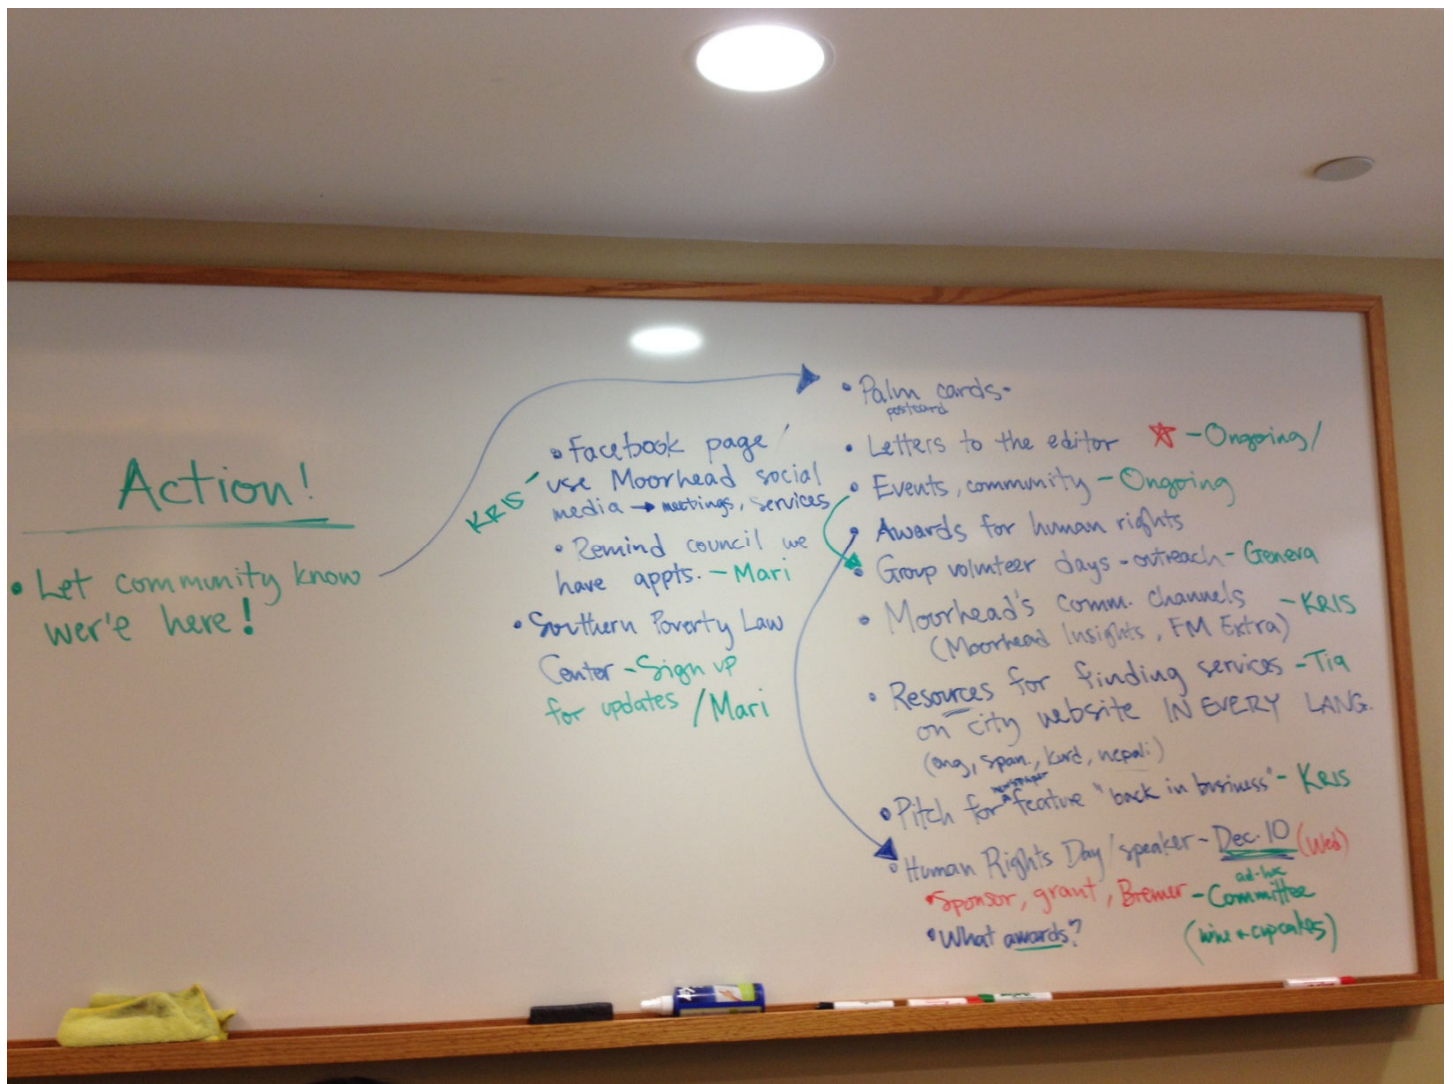 Action!
• Let community know
wer'e here!
KRIS -
• Facebook page /
use Moorhead social
media → meetings, services
• Remind council we
have appts. - Mari
• Southern Poverty Law
Center - Sign up
for updates / Mari
• Palm cards -
postcard
• Letters to the editor ☆ - Ongoing /
• Events, community - Ongoing
• Awards for human rights
• Group volunteer days - outreach - Geneva
• Moorhead's comm. channels - KRIS
(Moorhead Insights, FM Extra)
• Resources for finding services - Tia
on city website IN EVERY LANG.
(eng, span., kurd, nepali)
newspaper
• Pitch for a feature "back in business" - KRIS
• Human Rights Day / speaker - Dec. 10 (Wed)
ad-hoc
• Sponsor, grant, Bremer - Committee
• What awards? (wine & cupcakes)